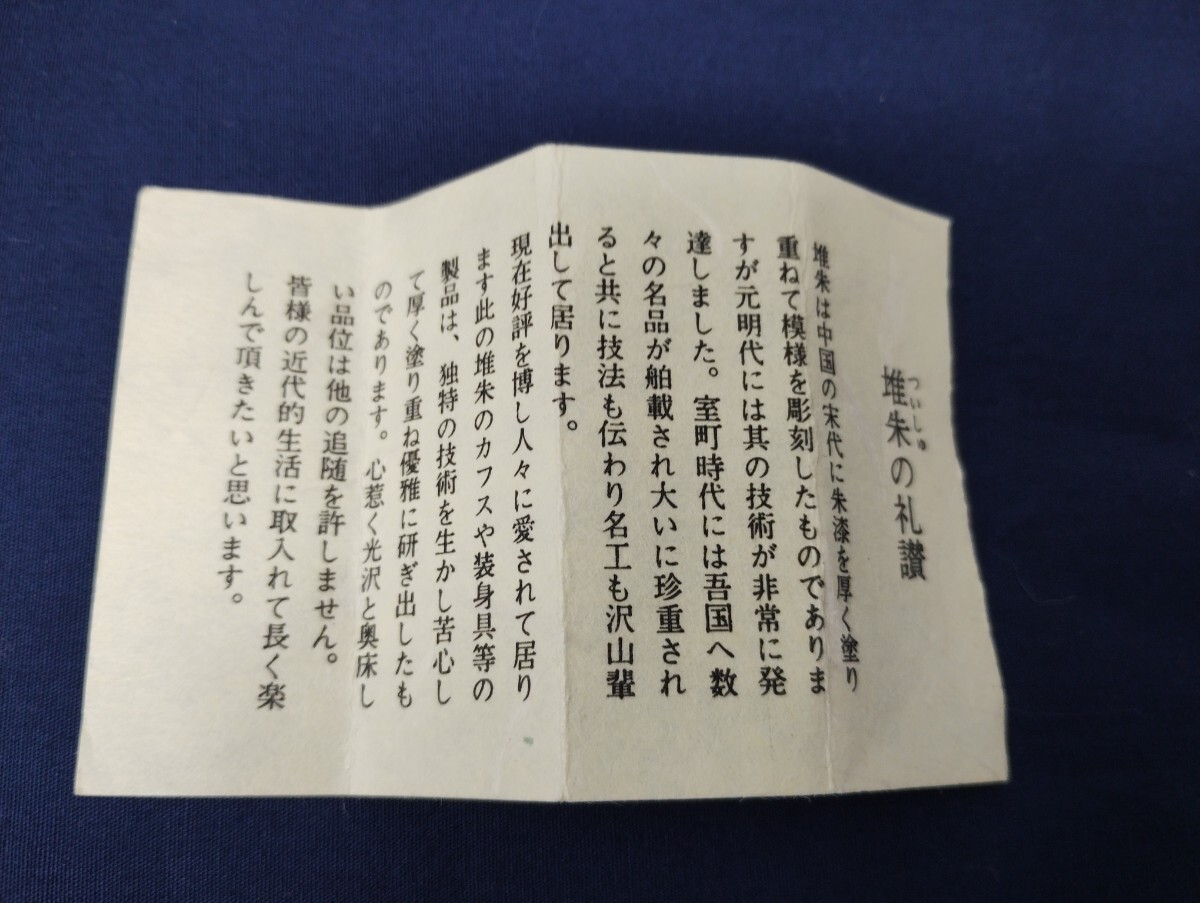 堆朱の礼讃
ついしゅ
堆朱は中国の宋代に朱漆を厚く塗り
重ねて模様を彫刻したものでありま
すが元明代には其の技術が非常に発
達しました。室町時代には吾国へ数
々の名品が舶載され大いに珍重され
ると共に技法も伝わり名工も沢山輩
出して居ります。
現在好評を博し人々に愛されて居り
ます此の堆朱のカフスや装身具等の
製品は、独特の技術を生かし苦心し
て厚く塗り重ね優雅に研ぎ出したも
のであります。心惹く光沢と奥床し
い品位は他の追随を許しません。
皆様の近代的生活に取入れて長く楽
しんで頂きたいと思います。